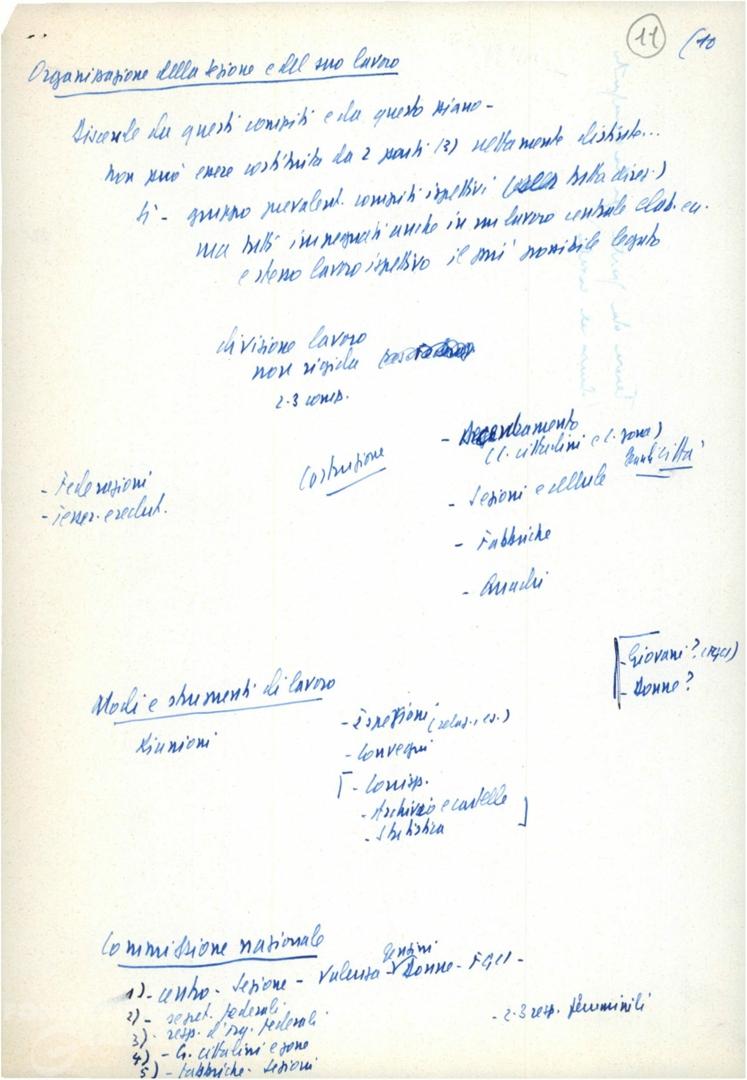 11 (10
Organizzazione della sezione e del suo lavoro
Discende da questi compiti e da questo piano -
Non può essere costituita da 2 parti (3) nettamente distinte...
Sì - gruppo prevalent. compiti ispettivi ( tutta direz.)
ma tutti impegnati anche in un lavoro centrale elab. ecc.
e stesso lavoro ispettivo il più possibile legato
divisione lavoro
non rigida
2-3 comp.
- Decentramento
(C. cittadini e C. zona)
Grandi città
Costruzione
- Federazioni
- Tesser. e reclut.
- Sezioni e cellule
- Fabbriche
- Quadri
- Giovani? (FGCI)
- Donne?
Modi e strumenti di lavoro
Riunioni
- Ispezioni (relaz., es.)
- Convegni
- Corrisp.
- Archivio e cartelle
- Statistica
Commissione nazionale
1) - centro - Sezione - Valenza - Gensini Donne - FGCI -
2) - segret. federali
3) - resp. d'org. federali
4) - C. cittadini e zone
5) - Fabbriche - Sezioni
- 2-3 resp. femminili